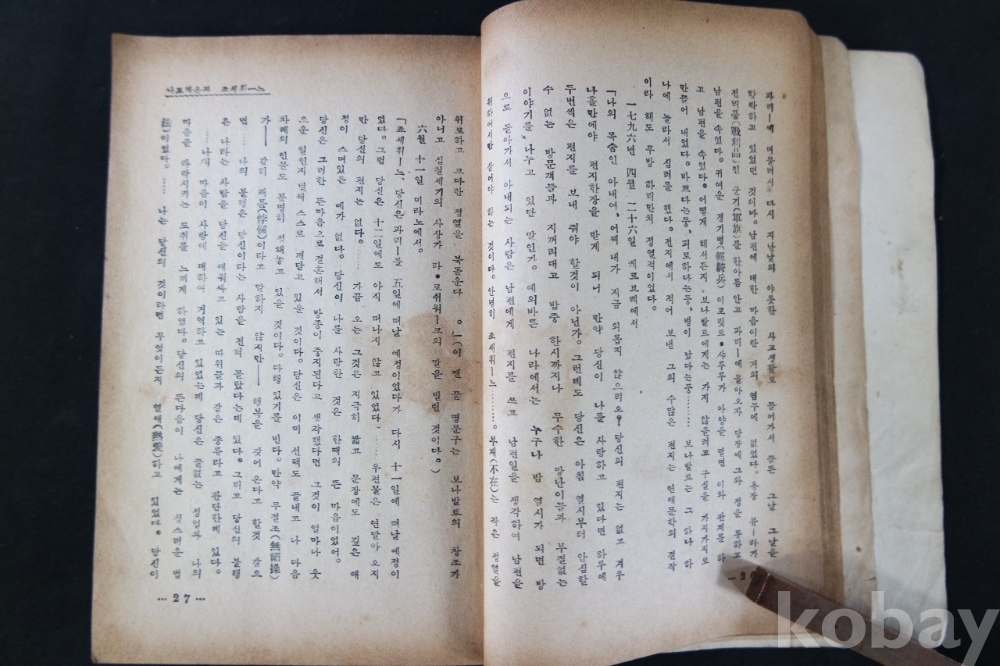 파리—에 머물러서 다시 지난날의 야릇한 사교생활로 들어가서 들뜬 그날 그날을
향락하고 있었던 것이다. 남편에 대한 마음이란 거의 염두에 없었다. 용장 쥬—라가
전리품(戰利品)인 군기(軍旗)를 한아름 안고 파리—에 돌아오자 당장에 그와 정을 통하고
남편을 속였다. 귀여운 경기병(輕騎兵) 이포릿트·샤루루가 아양을 떨면 이와 관계를 하
고 남편을 속였다. 어떻게 해서든지 보나팔트에게는 가지 않을려고 구실을 가지가지로
만들어 내었다. 바쁘다는둥, 피로하다는둥, 병이 났다는둥…… 보나팔트는 그 하나 하
나에 놀라서 심려를 했다. 전지에서 적어 보낸 그의 수많은 편지는 연애문학의 걸작
이라 해도 무방 하리만치 정열적이었다.
一七九六년 四월 二十六일 케르브레에서
「나의 목숨인 아내여, 어찌 내가 지금 외롭지 않으리오? 당신의 편지는 없고 겨우
나흘만에야 편지한장을 받게 되니 만약 당신이 나를 사랑하고 있다면 하루에
두번씩은 편지를 보내 줘야 할것이 아닌가. 그런데도 당신은 아침 열시부터 안심할
수 없는 방문객들과 지꺼리대고 밤중 한시까지나 무수한 망난이들과 부질없는
이야기를 나누고 있단 말인가. 예의바른 나라에서는 누구나 밤 열시가 되면 방
으로 돌아가서 아내되는 사람은 남편에게 편지를 쓰고 남편일을 생각하며 남편을
위하여서만 살어야 하는 것이다. 안녕히 죠세퓌—느……. 부재(不在)는 작은 정열을
나포레온과 죠세퓌—느
위로하고 크다란 정열을 북돋운다。」(이 맨 끝 명문구는 보나팔트의 창조가
아니고 십칠세기의 사상가 라·로쉬훠—코의 말을 빌린 것이다。)
六월 十一일 미라노에서.
「죠세퓌—느, 당신은 파리—를 五일에 떠날 예정이었다가 다시 十一일에 떠날 예정이
었다. 그럼 당신은 十二일에도 아직 떠나지 않고 있었다. …… 우편물은 연달아 오지
만 당신의 편지는 없다. …… 가끔 오는 그것은 지극히 짧고 문장에도 깊은 애
정이 스며있은 예가 없다. 당신이 나를 사랑한 것은 한때의 뜬 마음이었어.
당신은 그러한 뜬마음으로 결혼해서 방종이 중지된다고 생각했다면 그것이 얼마나 웃
으운 일인지 벌써 스스로 깨닫고 있을 것이다. 당신은 이미 선택도 끝내고 나 다음
차례의 인물도 분명히 정해놓고 있을 것이다. 다행 있기를 빈다. 만약 무절조(無節操)
가—— 말하지 않지만—— 행복을 갖어 온다고 할것 같으
…… 나의 불행은 당신이라는 사람을 전혀 몰랐다는데 있다. 그리고 당신의 불행
은 나라는 사람을 당신을 에워싸고 있는 따위들과 같은 종류라고 판단한데 있다.
…… 내 마음이 사랑에 대하고 거역하고 있었는데 당신은 끝없는 정열로 나의
마음을 느끼게 하였다. 당신의 뜬마음이 나에게는 성스러운 법
이었다. …… 나는 당신의 것이라면 무엇이든지 열애(熱愛)하고 있었다. 당신이
… 27 …
kobay